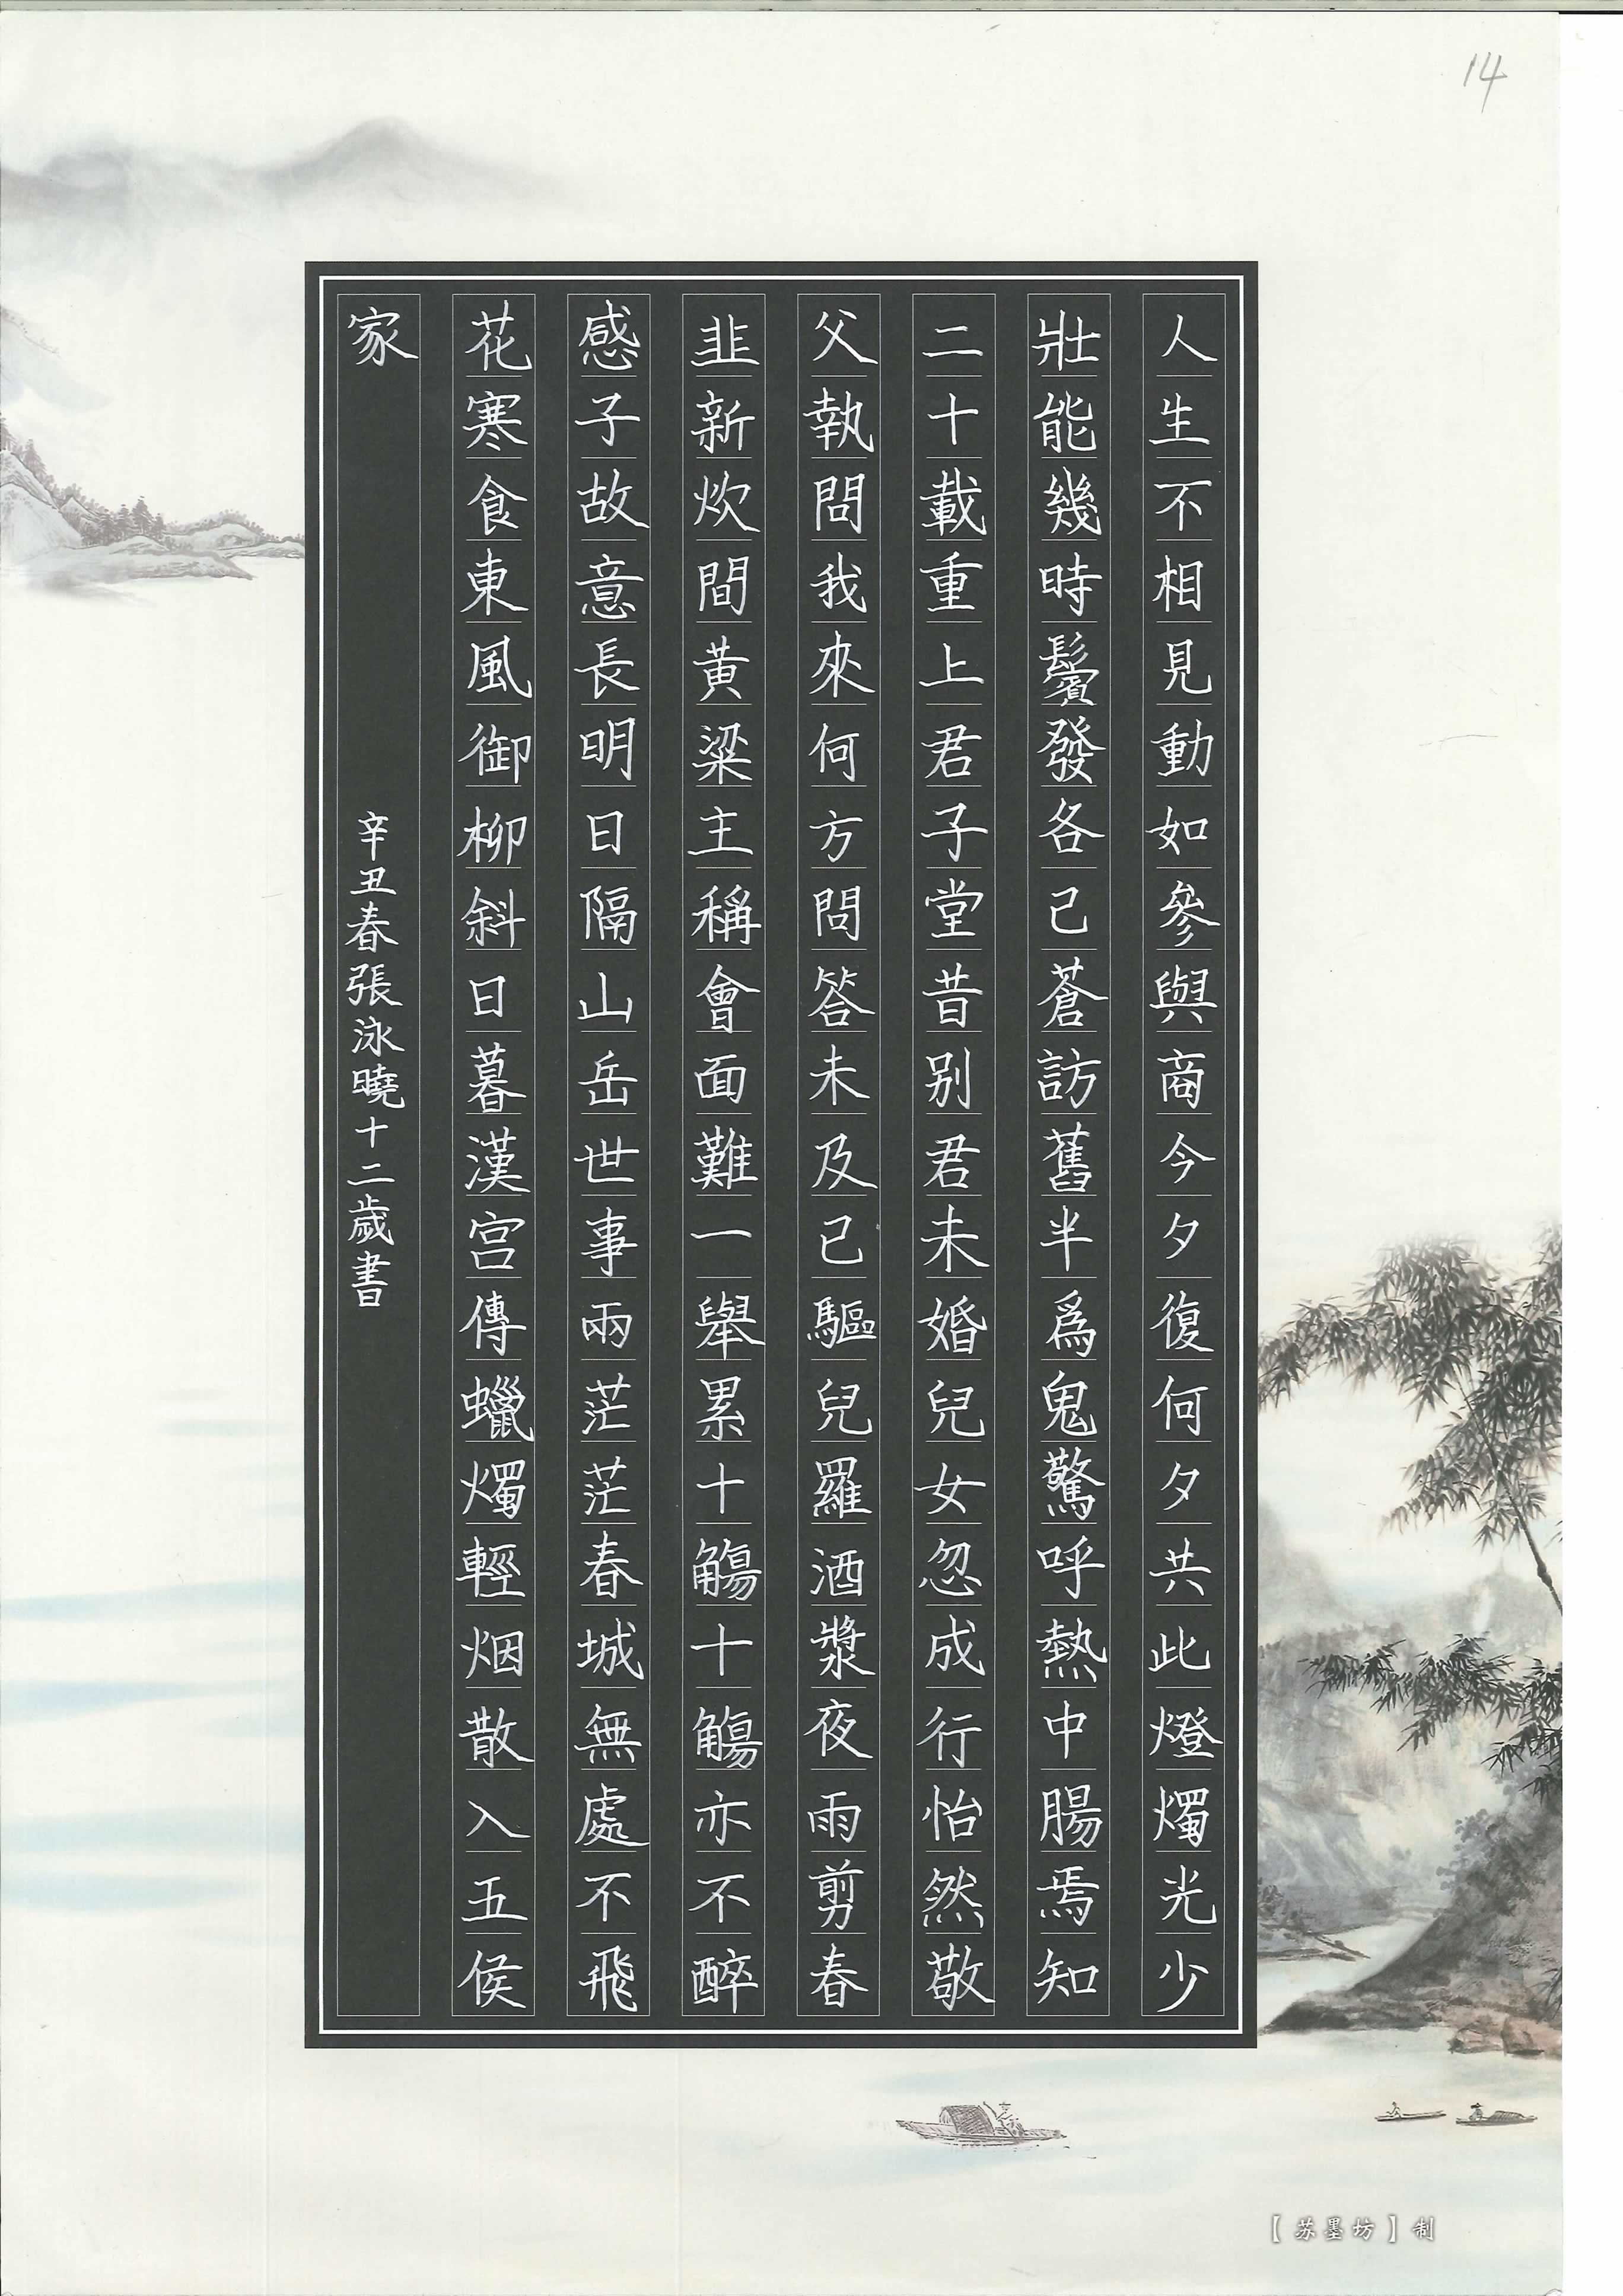 14
人生不相見動如參與商今夕復何夕共此燈燭光少
壯能幾時鬢發各已蒼訪舊半為鬼驚呼熱中腸焉知
二十載重上君子堂昔别君未婚兒女忽成行怡然敬
父執問我來何方問答未及已驅兒羅酒漿夜雨剪春
韭新炊間黃粱主稱會面難一舉累十觴十觴亦不醉
感子故意長明日隔山岳世事兩茫茫春城無處不飛
花寒食東風御柳斜日暮漢宮傳蠟燭輕烟散入五侯
家
辛丑春張泳曉十二歲書
【苏墨坊】制